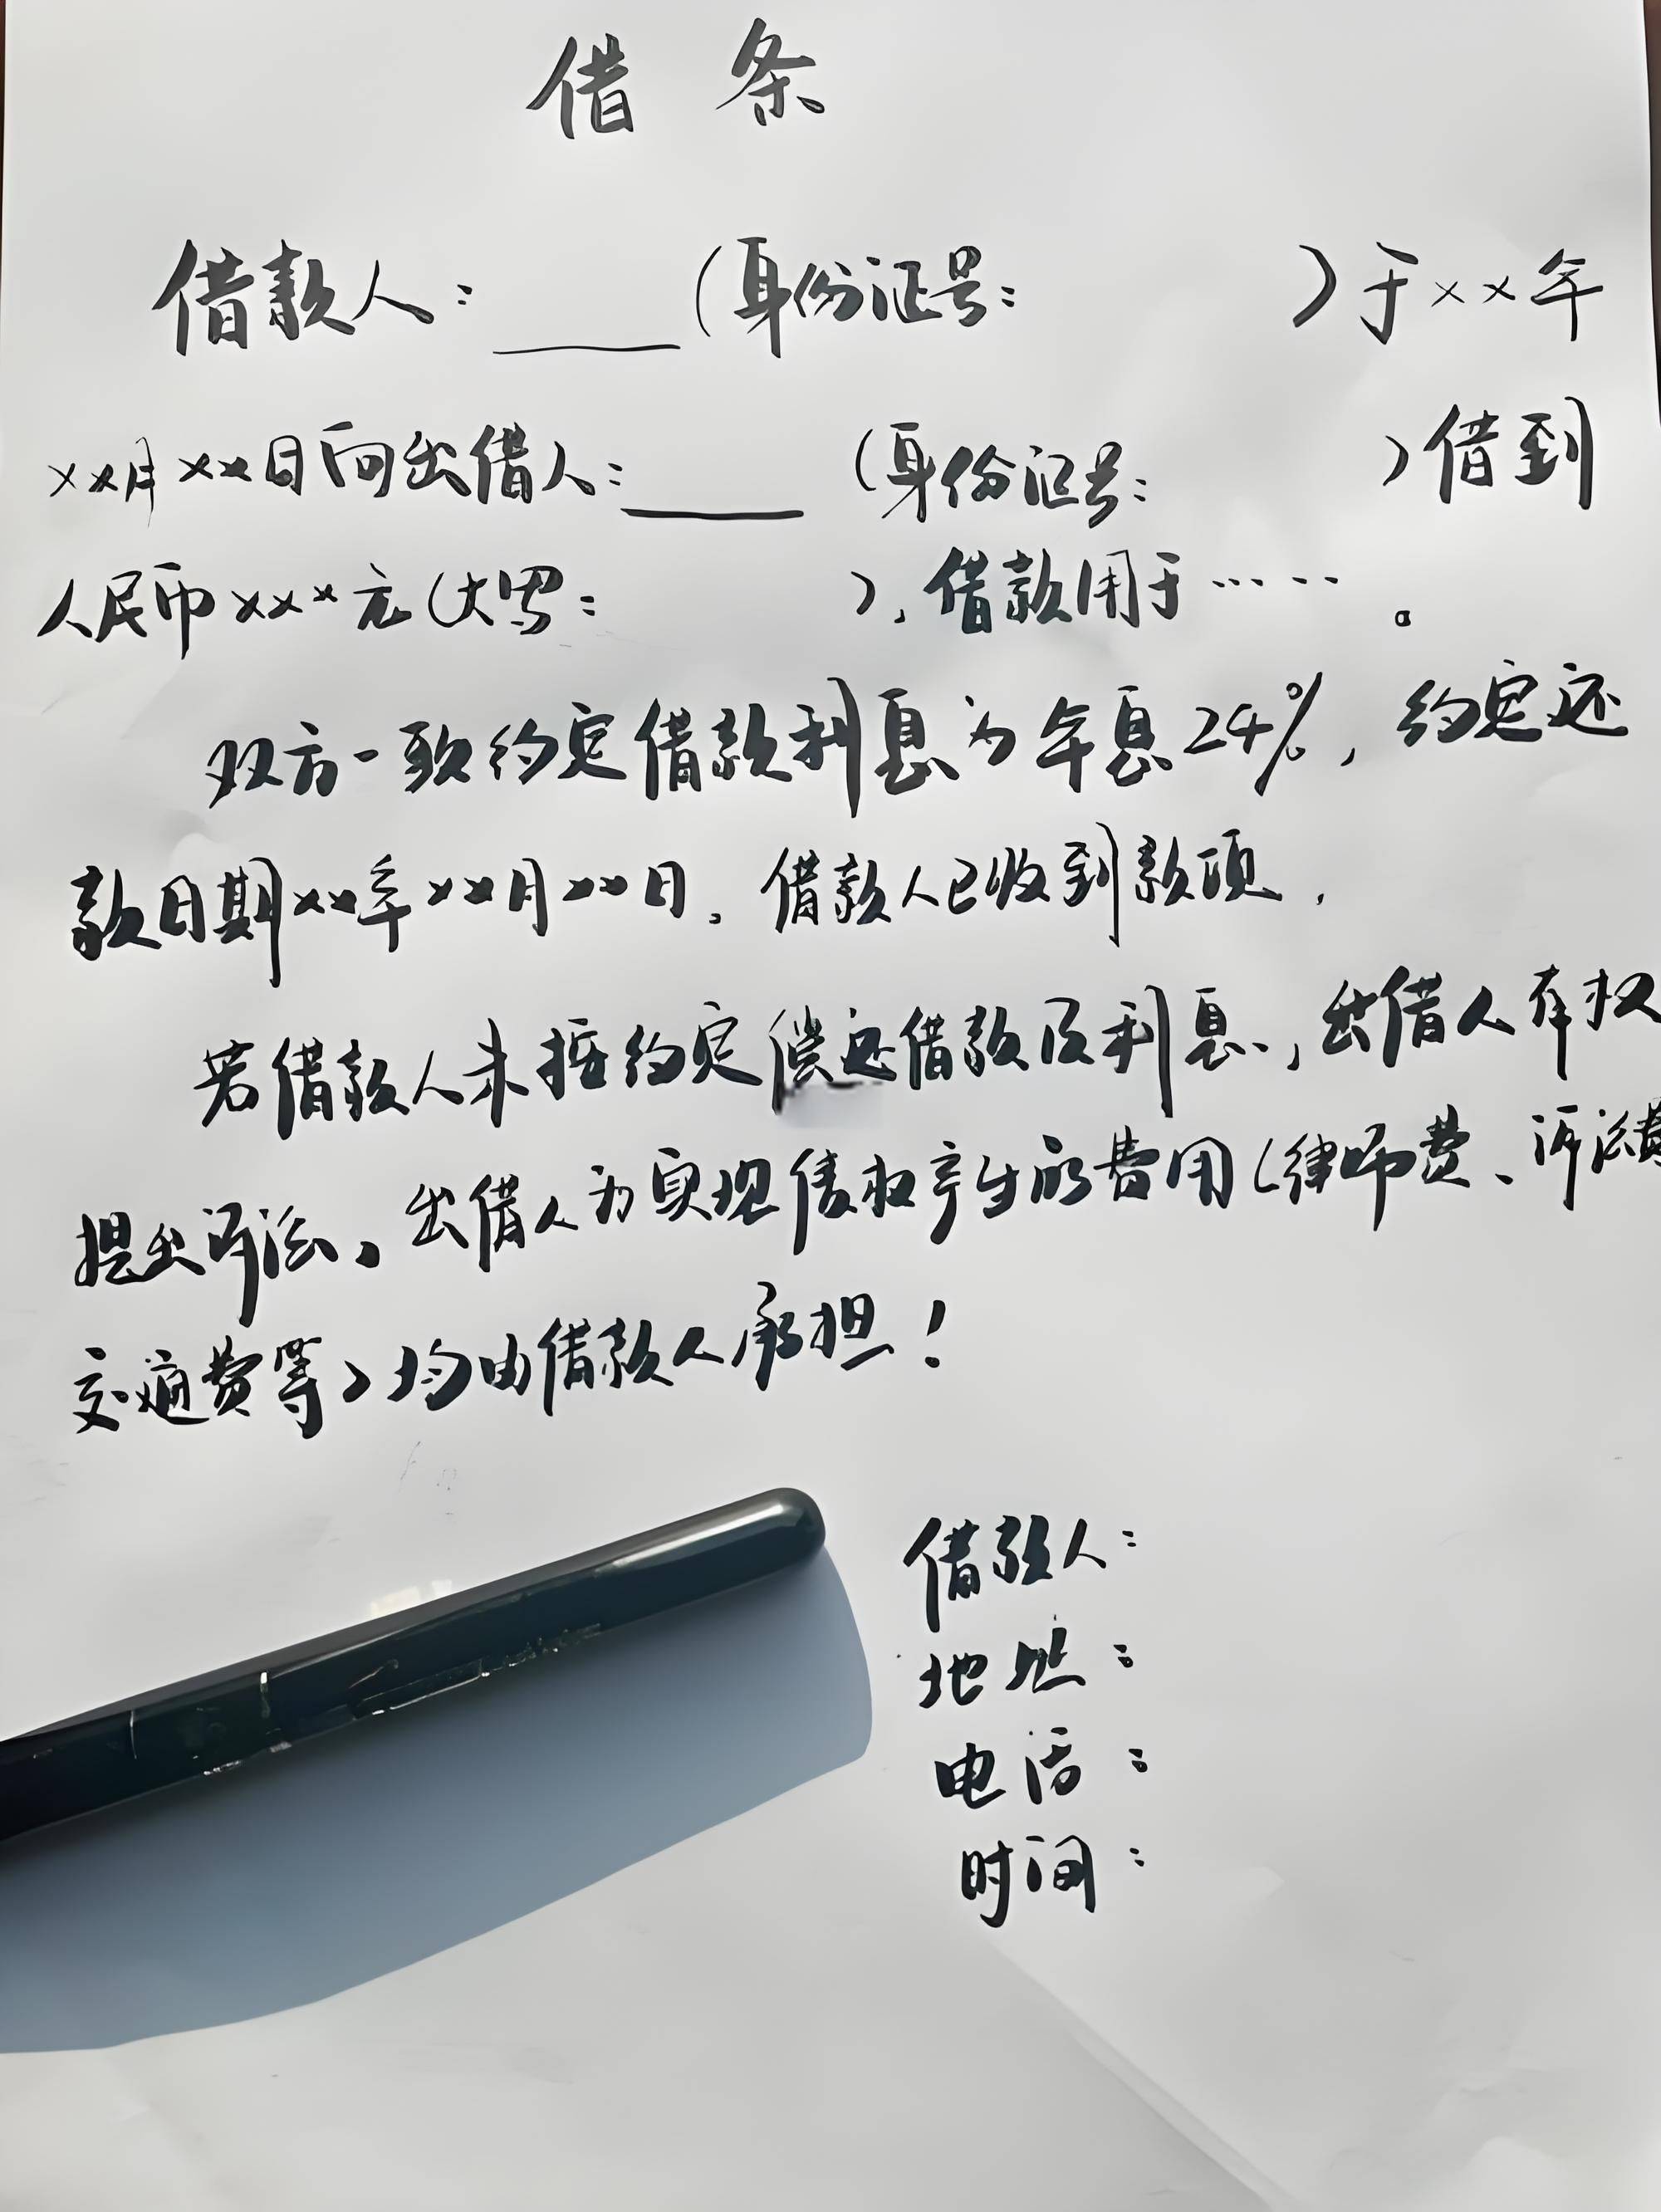 借条
借款人：____（身份证号：）于××年
××月××日向出借人：____（身份证号：）借到
人民币×××元（大写：），借款用于……。
双方一致约定借款利息为年息24%，约定还
款日期××年××月××日。借款人已收到款项.
若借款人未按约定偿还借款及利息，出借人有权
提出诉讼。出借人为实现债权产生的费用（律师费、诉讼费
交通费等）均由借款人承担！
借款人：
地址：
电话：
时间：